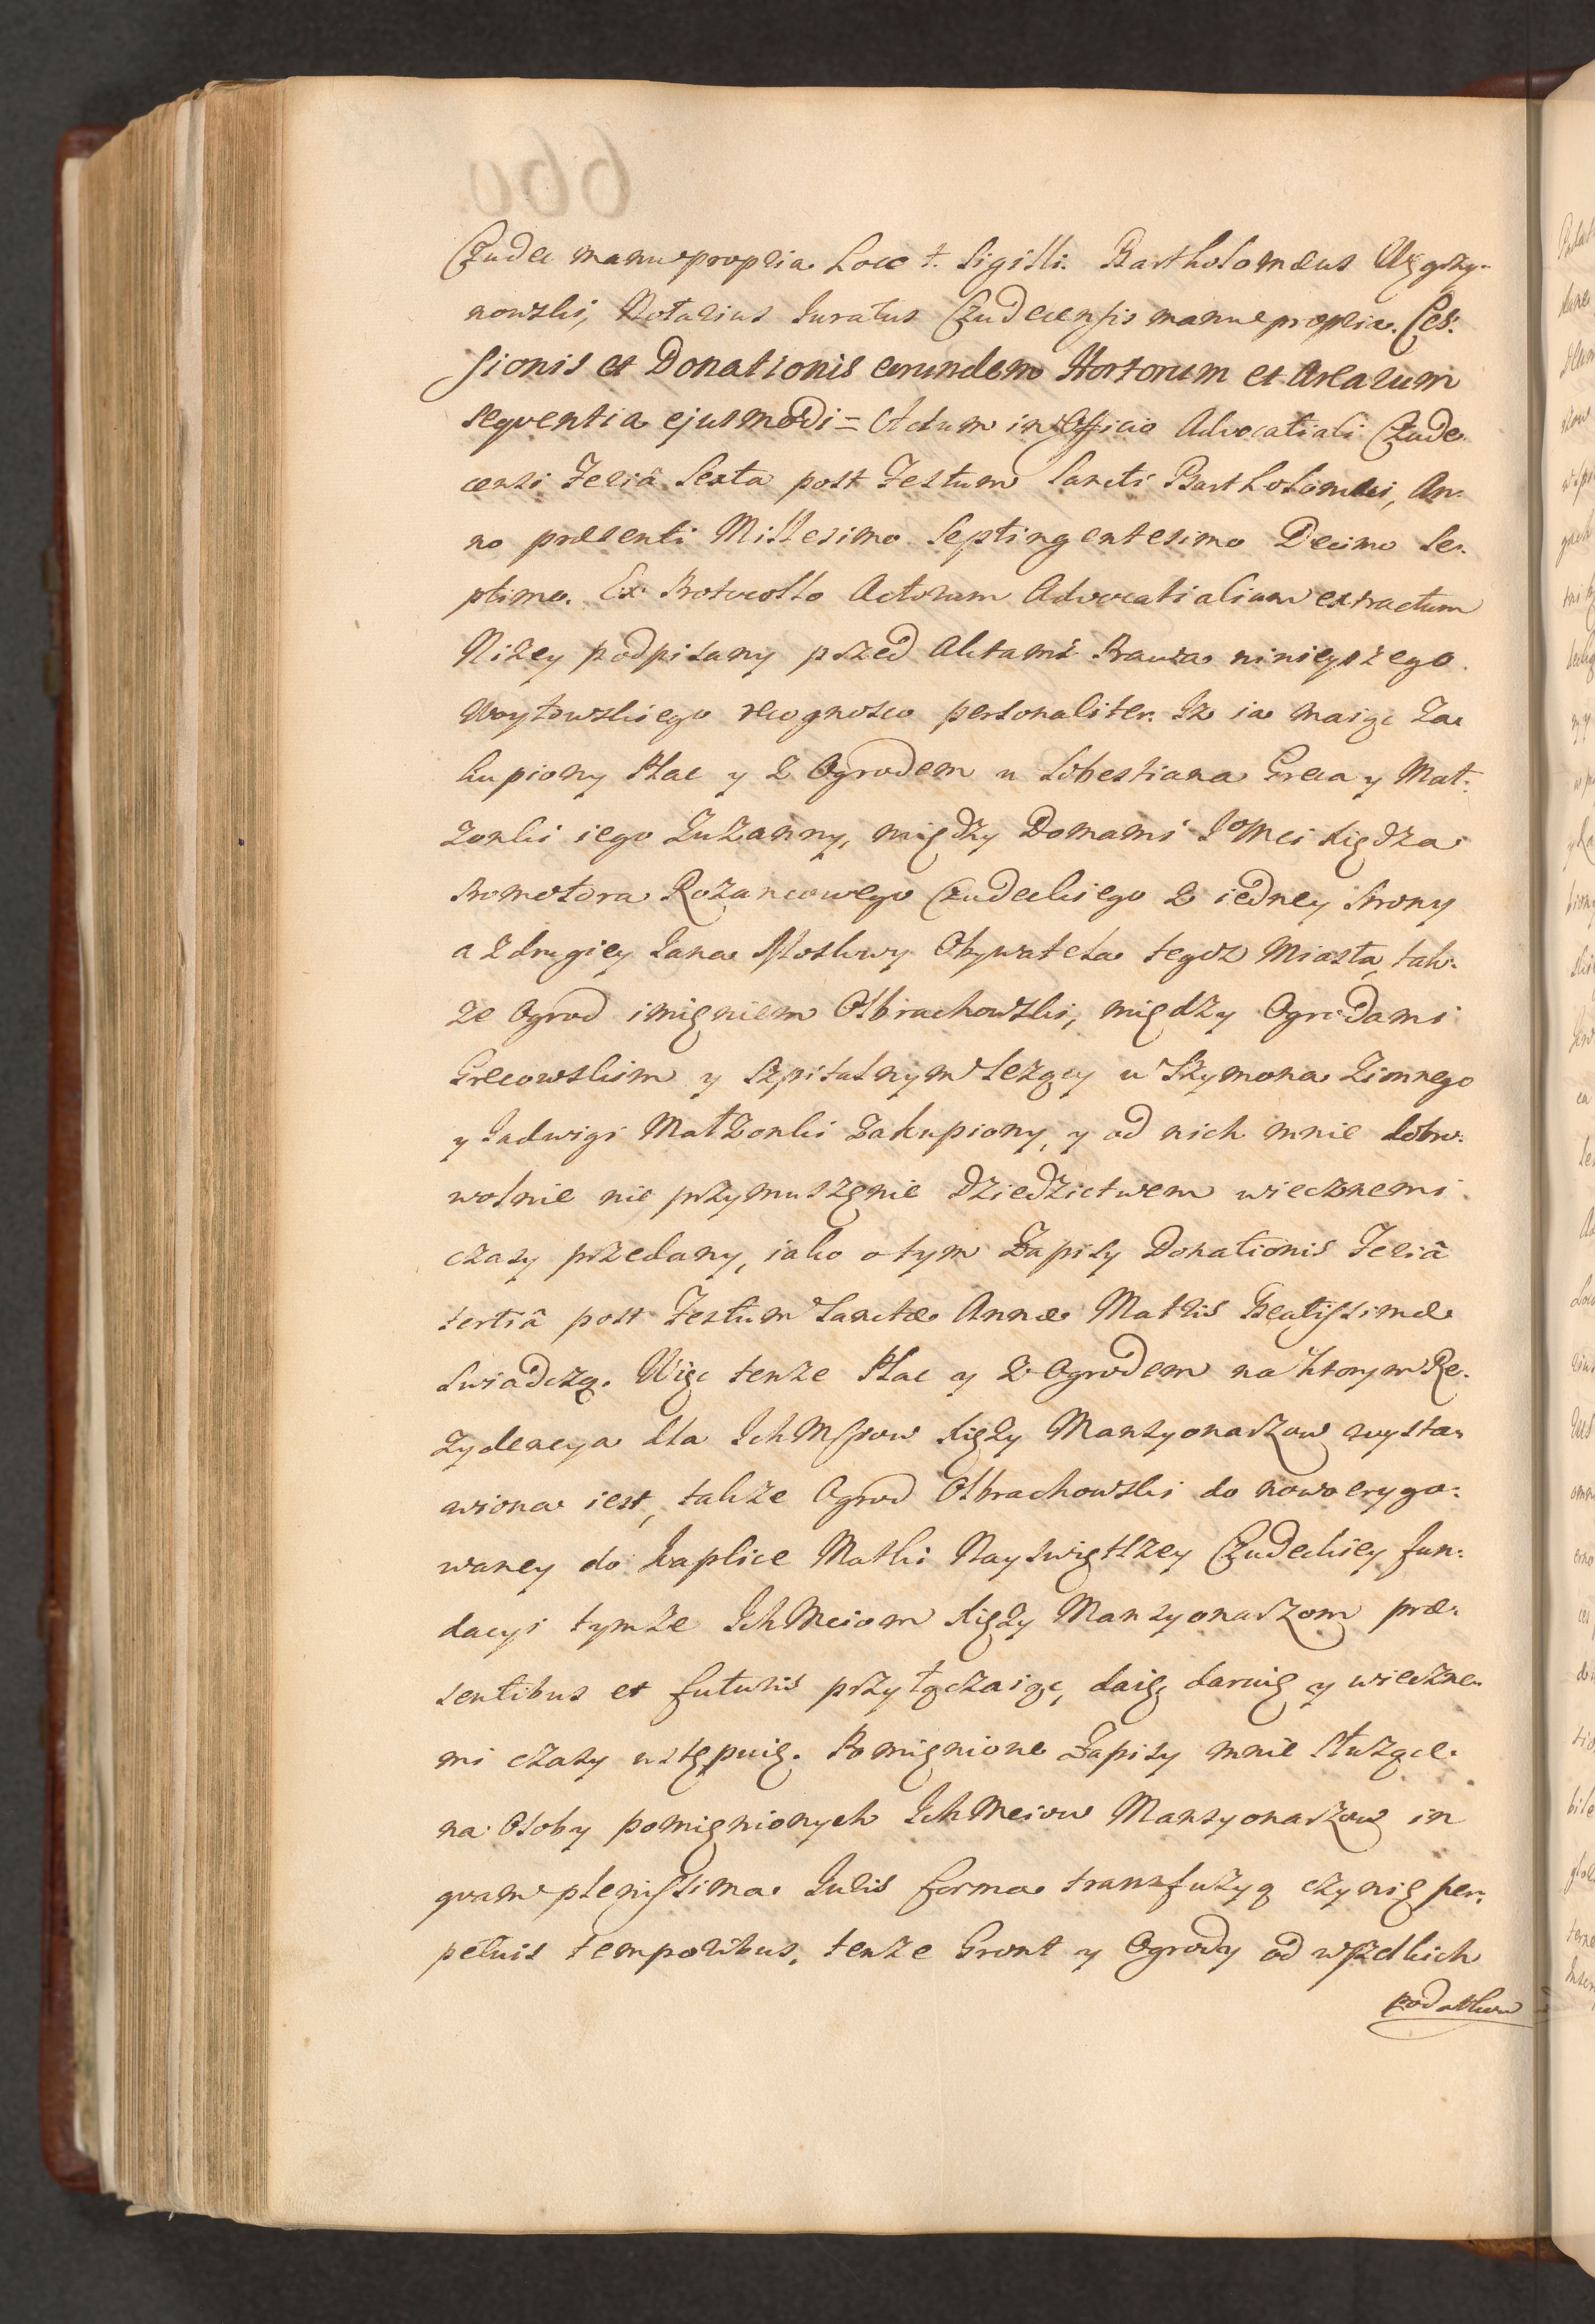 Czudec manu propria. Loco †. Sigilli. Bartholomæus Węgrzy-
nowski, Notarius Juratus Czudecensis manu propria. Ces:
sionis et Donationis eorundem Hortorum et Arearum
seqventia ejusmodi = Actum in Officio Advocatiali Czude
censi Feriâ Sexta post Festum Sancti Bartholomæi, An-
no præsenti Millesimo Septingentesimo Decimo Se-
ptimo. Ex Protocollo Actorum Advocatialium extractum
Niżey podpisany przed Aktami Prawa ninieyszego
Woytowskiego recognosco personaliter. Iż ia maiąc Za
kupiony Plac y z Ogrodem u Sebestiana Greca y Mał:
żonki iego Zuzanny, między Domami JoMci Księdza
Promotora Rożancowego Czudeckiego z iedney Strony
a z drugiey Jana Obywatela tegoż Miasta, tak-
że Ogrod imięniem Olbrachowski, między Ogrodami
Grecowskim y Szpitalnym leżący u Szymona Zimnego
y Jadwigi Małżonki zakupiony, y od nich mnie dobro-
wolnie nie przymuszęnie Dziedzictwem wiecznemi
czasy przedany, iako o tym Zapisy Donationis Feriâ
tertiâ post Festum Sanctæ Annæ Matris Beatissimæ
świadczą. Więc tenże Plac y z Ogrodem na ktorym Re-
zydencya dla Ichmspow Księży Mansyonarzow wysta-
wiona iest, także Ogrod Olbrachowski do nowo erygo-
waney do Kaplice Matki Nayświętszey Czudeckiey fun-
dacyi tymże IchMciom Księży Mansyonarzom præ-
sentibus et futuris przyłączaiąc, daię, daruię y wieczne-
mi czasy ustępuię. Pomięnione Zapisy mnie służące
na Osoby pomięnionych IchMciow Mansyonarzow in
qvam plenissima Juris forma transfuzyą czynię per-
petuis temporibus, tenże Gront y Ogrody od wszelkich
podatkow